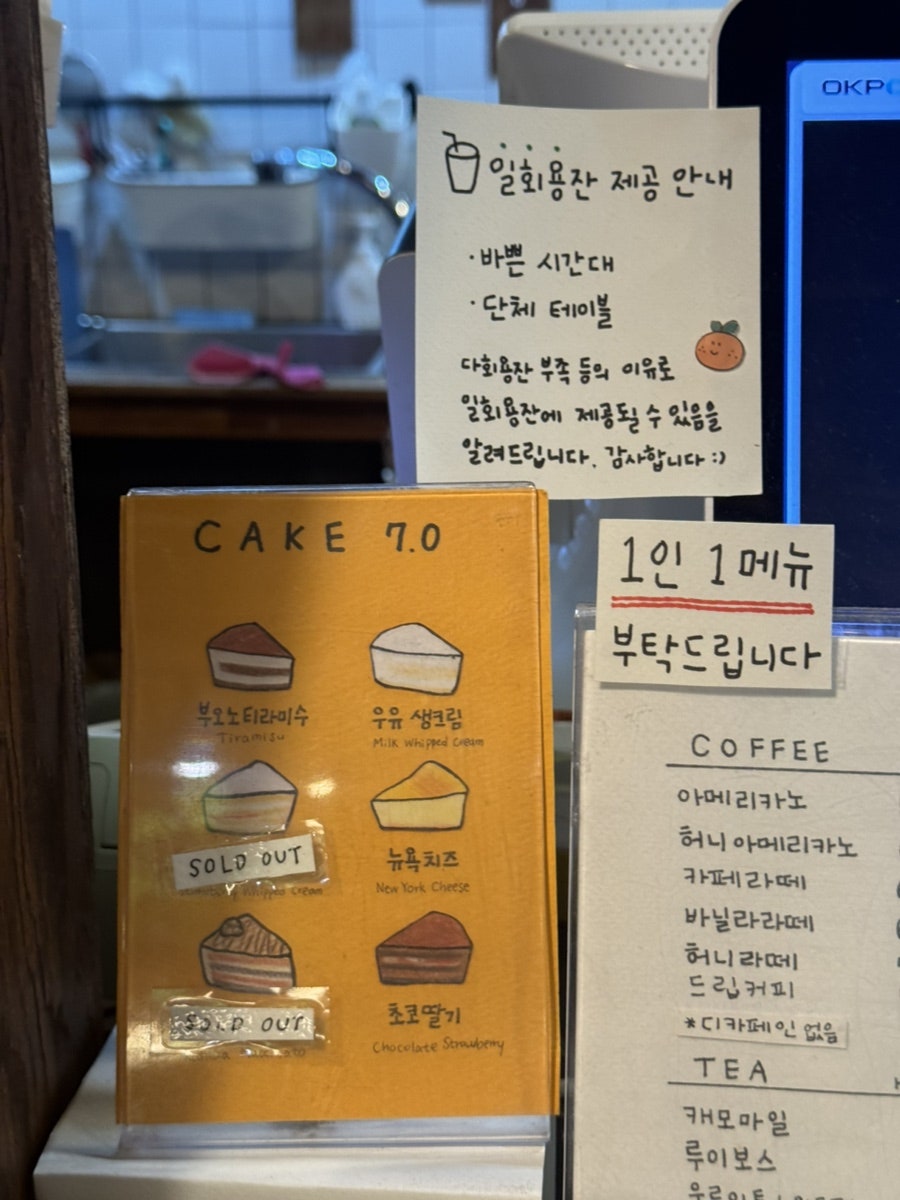 OKPO
일회용잔 제공 안내
· 바쁜 시간대
· 단체 테이블
다회용잔 부족 등의 이유로
일회용잔에 제공될 수 있음을
알려드립니다. 감사합니다 :)
CAKE 7.0
부오노티라미수
Tiramisu
우유 생크림
Milk Whipped Cream
SOLD OUT
Whipped Cream
뉴욕치즈
New York Cheese
SOLD OUT
초코딸기
Chocolate Strawberry
1인 1메뉴
부탁드립니다
COFFEE
아메리카노
허니 아메리카노
카페라떼
바닐라라떼
허니라떼
드립커피
*디카페인 없음
TEA
캐모마일
루이보스